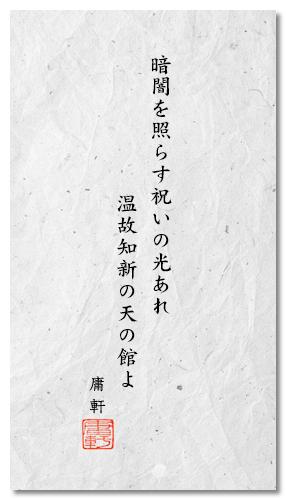 暗闇を照らす祝いの光あれ
温故知新の天の館よ
庸軒
庸軒